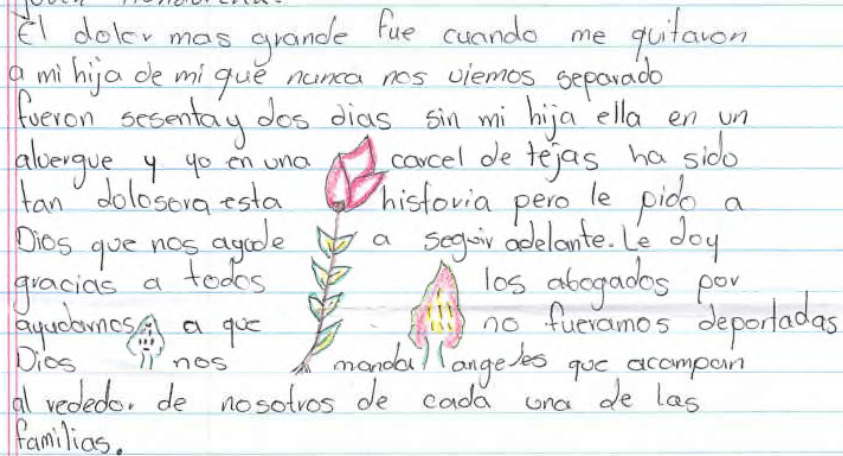 El dolor mas grande fue cuando me quitaron
a mi hija de mi que nunca nos viemos separado
fueron sesenta y dos dias sin mi hija ella en un
alvergue y yo en una carcel de tejas ha sido
tan dolosora esta historia pero le pido a
Dios que nos ayude a seguir adelante. Le doy
gracias a todos los abogados por
ayudarnos a que no fueramos deportadas
Dios nos manda angeles que acampan
al rededor de nosotros de cada una de las
familias.